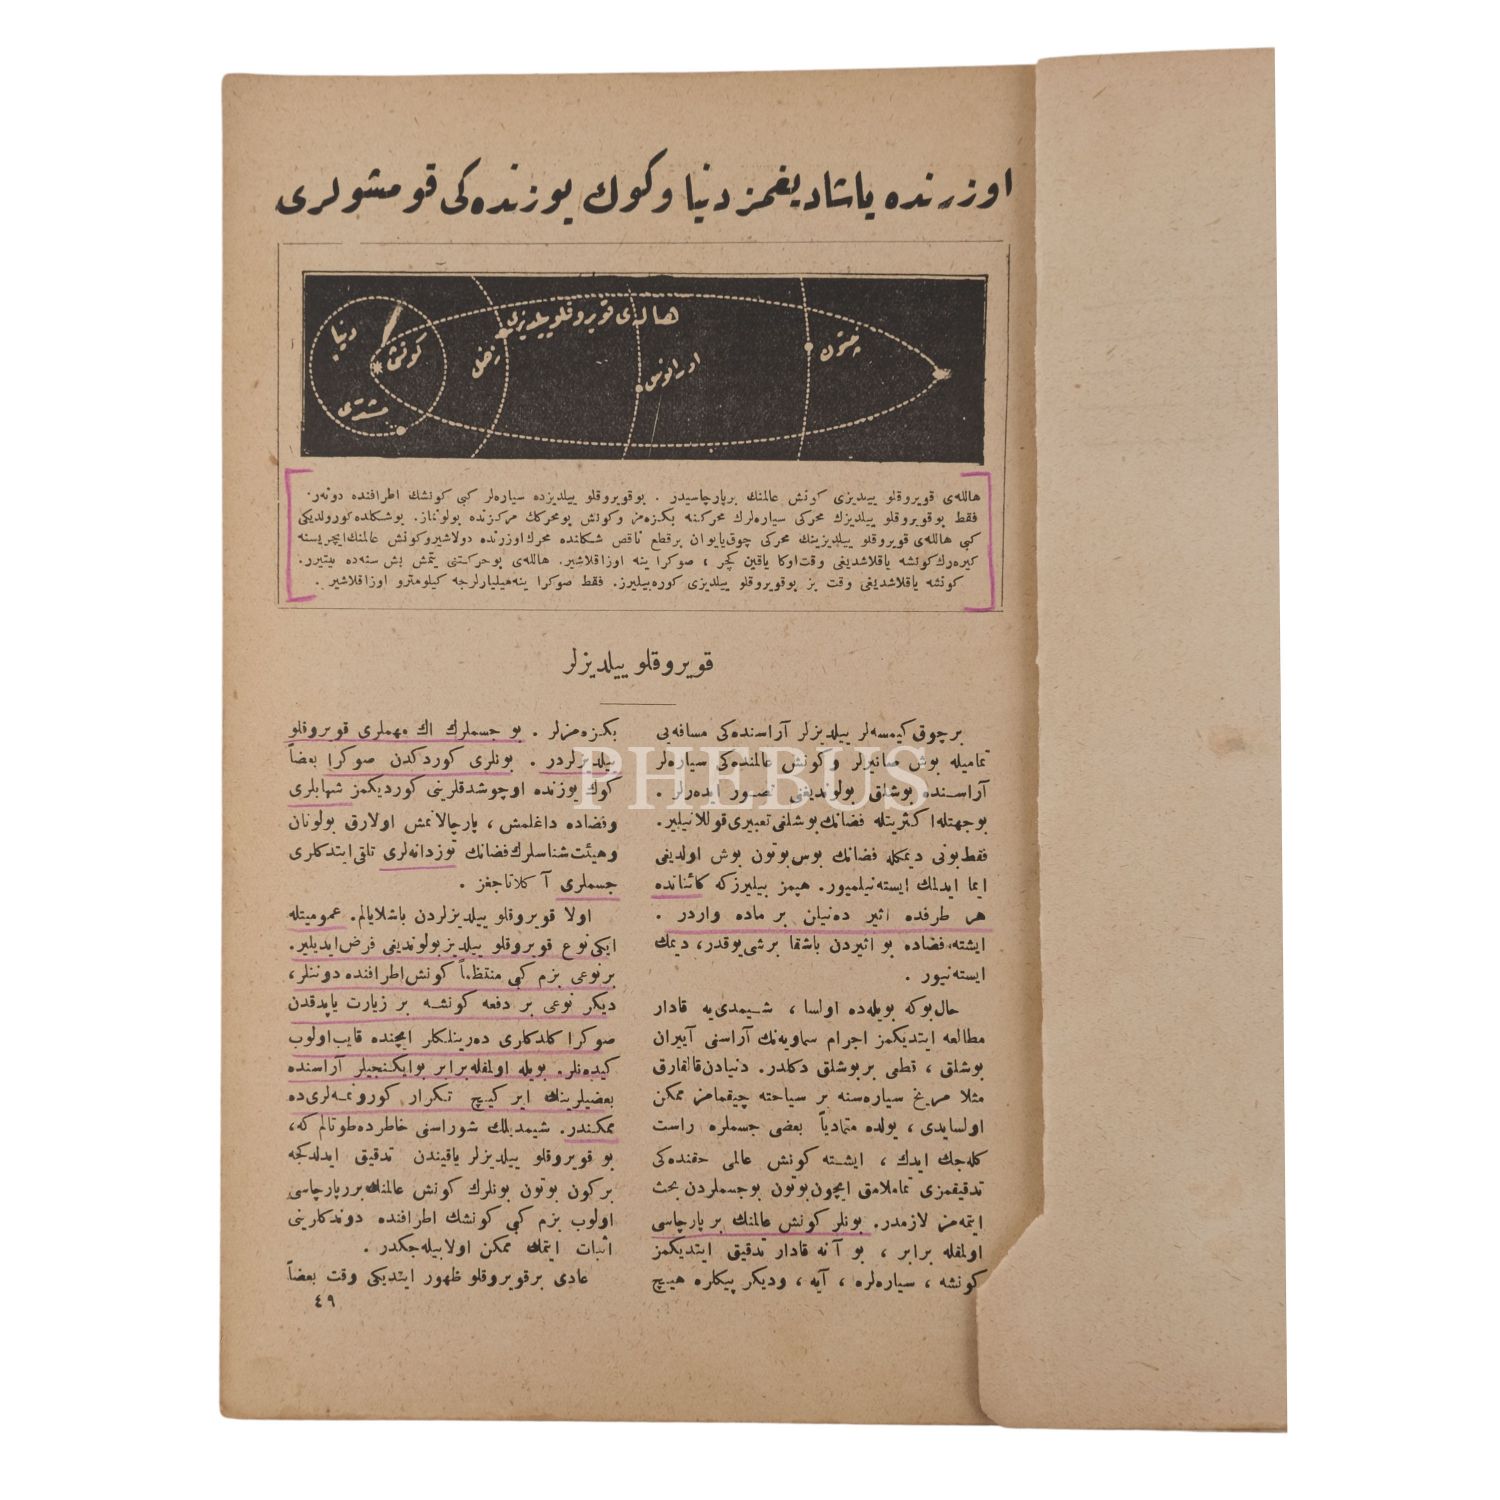 اوزرنده ياشاديغمز دنيا و كوك يوزنده كى قومشولرى
هاله‌ى قويروقلو ييلديزى
دنيا
كونش
مشترى
زحل
اورانوس
نپتون
هالله‌ى قويروقلو ييلديزى كونش عالمنك برپارچاسيدر . بوقويروقلو ييلديزده سياره‌لر كبى كونشك اطرافنده دونه‌ر.
فقط بوقويروقلو ييلديزك محركى سياره‌لرك محركنه بكزه‌مز وكونش بومحركك مركزنده بولونماز. بوشكلده‌كورولديكى
كبى هالله‌ى قويروقلو ييلديزينك محركى چوق‌يايوان برقطع ناقص شكلنده محرك‌اوزرنده دولاشيروكونش عالمنك‌ايچريسنه
كيره‌رك‌كونشه ياقلاشديغى وقت‌اوكا ياقين كچر ، صوكرا ينه اوزاقلاشير. هالله‌ى بوحركتنى يتمش بش سنه‌ده بيتيرر.
كونشه ياقلاشديغى وقت بز بوقويروقلو ييلديزى كوره‌بيليرز. فقط صوكرا ينه‌ميليارلرجه كيلومترو اوزاقلاشير .
قويروقلو ييلديزلر
برچوق كيمسه‌لر ييلديزلر آراسنده‌كى مسافه‌يى
تماميله بوش صانيرلر وكونش عالمنده‌كى سياره‌لر
آراسنده بوشلق بولونديغى تصور ايده‌رلر .
بوجهتله اكثريتله فضانك بوشلغى تعبيرى قوللانيلير.
فقط بونى ديمكله فضانك بوس بوتون بوش اولديغى
ايما ايدلمك ايسته‌نيلميور. هپمز بيليرزكه كائناتده
هر طرفده اثير دەنيلن بر ماده واردر .
ايشته، فضاده بو اثيردن باشقا برشى يوقدر، ديمك
ايسته‌نيور .
حال‌بوكه بويله‌ده اولسا ، شيمدى‌يه قادار
مطالعه ايتديكمز اجرام سماويه‌نك آراسنى آييران
بوشلق ، قطعى بربوشلق دكلدر. دنيادن‌قالقارق
مثلا مريخ سياره‌سنه بر سياحته چيقمامز ممكن
اولسايدى ، يولده متمادياً بعضى جسملره راست
كله‌جك ايدك ، ايشته كونش عالمى حقنده‌كى
تدقيقمزى تماملامق ايچون‌بوتون بوجسملردن بحث
ايتمه‌مز لازمدر. بونلر كونش عالمنك بر پارچاسى
اولمقله برابر ، بو آنه قادار تدقيق ايتديكمز
كونشه ، سياره‌لره ، آيه ، وديكر پيكلره هيچ
بكزه‌مزلر . بو جسملرك اك مهملرى قويروقلو
ييلديزلردر . بونلرى كوردكدن صوكرا بعضاً
كوك يوزنده اوچوشدقلرينى كورديكمز شهابلرى
وفضاده داغلمش ، پارچالانمش اولارق بولونان
وهيئت‌شناسلرك‌فضانك توزدانه‌لرى تلقى ايتدكلرى
جسملرى آكلاتاجغز .
اولا قويروقلو ييلديزلردن باشلايالم. عموميتله
ايكى نوع قويروقلو ييلديزبولونديغى فرض‌ايديلير.
برنوعى بزم كبى منتظماً كونش‌اطرافنده دوننلر،
ديكر نوعى بر دفعه كونشه بر زيارت ياپدقدن
صوكرا كلدكلرى ده‌رينلكلر ايچنده قايب‌اولوب
كيده‌نلر. بويله اولمقله‌برابر بوايكنجيلر آراسنده
بعضيلرينك اير كيچ تكرار كورونمه‌لرى‌ده
ممكندر. شيمديلك شوراسنى خاطرده‌طوتالم كه،
بو قويروقلو ييلديزلر ياقيندن تدقيق ايدلدكجه
بركون بوتون بونلرك كونش عالمنك‌بررپارچاسى
اولوب بزم كبى كونشك اطرافنده دوندكلرينى
اثبات ايتمك ممكن اولابيله‌جكدر .
عادى برقويروقلو ظهور ايتديكى وقت بعضاً
٤٩
PHEBUS